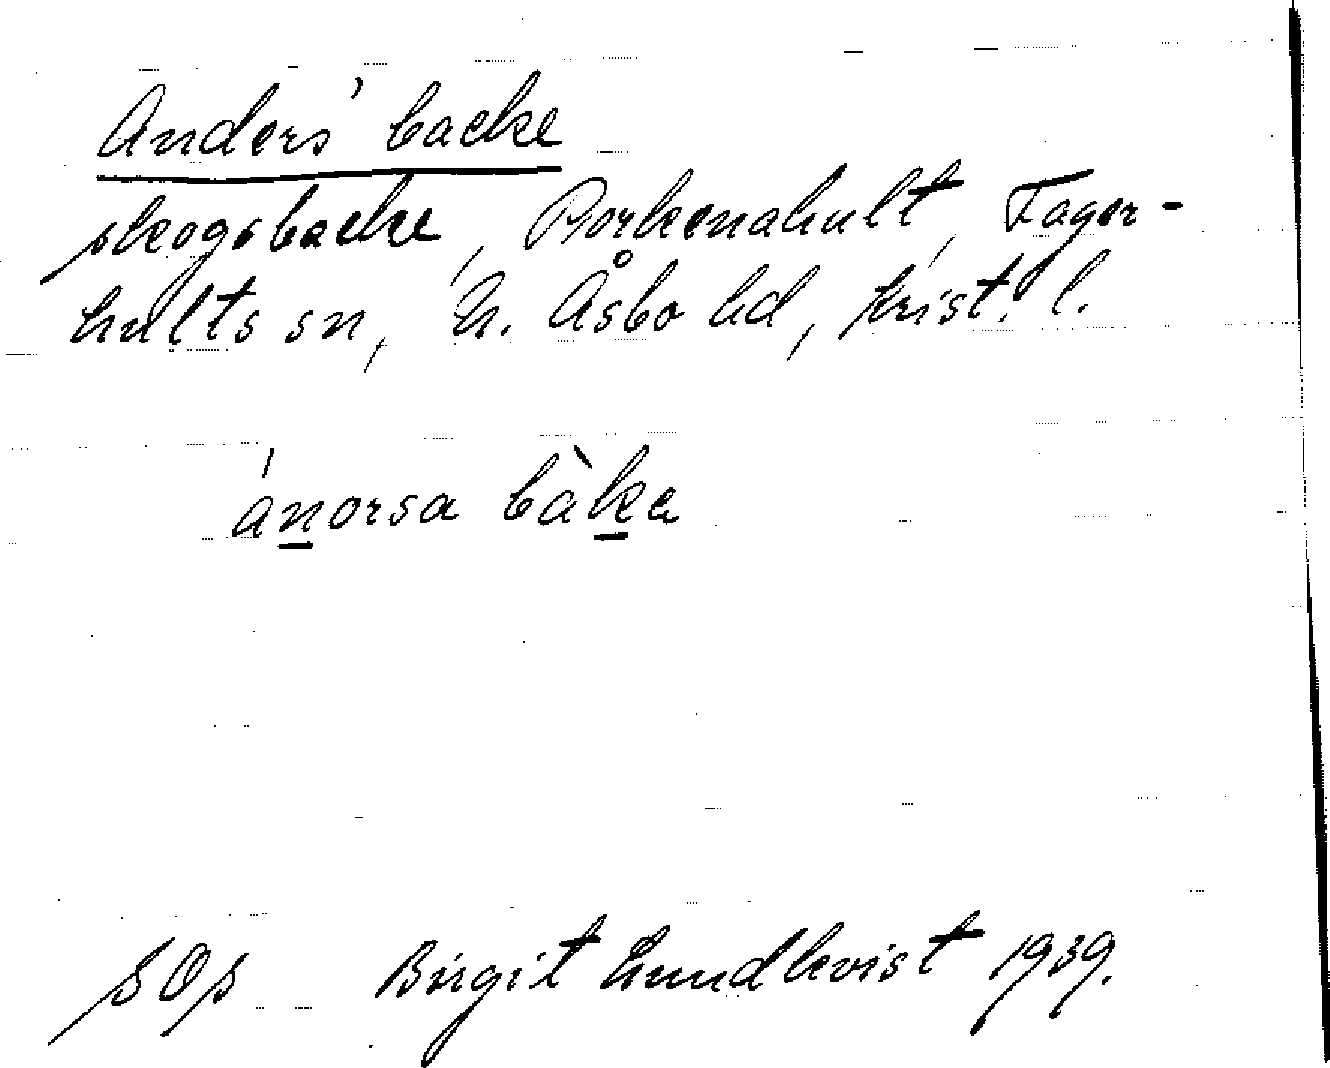 Anders' backe
skogsbacke, Borkenahult, Fager-
hults sn, N. Åsbo hd, Krist. l.
ánorsa bàka
sOs Birgit Lundkvist 1939.